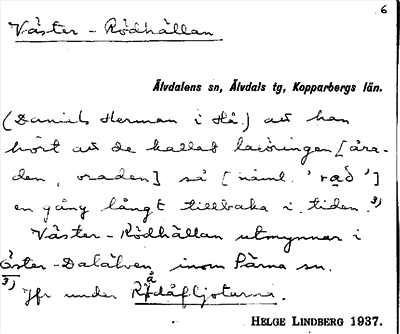 6
Väster - Rödhällan
Älvdalens sn, Älvdals tg, Kopparbergs län.
(Daniels Herman i Hå.) att han
hört att de kallat laxöringen [åra-
den, oraden] så [näml. 'rað']
en gång långt tillbaka i tiden. ³)
Väster-Rödhällan utmynnar i
Öster-Dalälven inom Särna sn.
³) Jfr under Rödåfljotarna.
å
HELGE LINDBERG 1937.